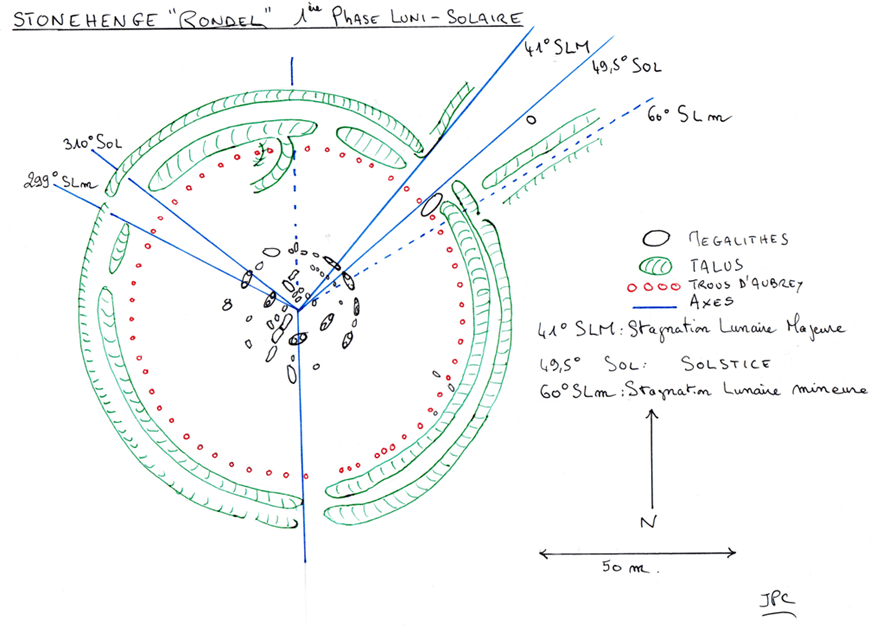 STONEHENGE "RONDEL" 1ère PHASE LUNI-SOLAIRE
41° SLM
49,5° SOL
60° SLm
310° SOL
299° SLm
MEGALITHES
TALUS
TROUS D'AUBREY
AXES
41° SLM : Stagnation Lunaire Majeure
49,5° SOL : SOLSTICE
60° SLm : Stagnation Lunaire mineure
N
50 m.
JPC